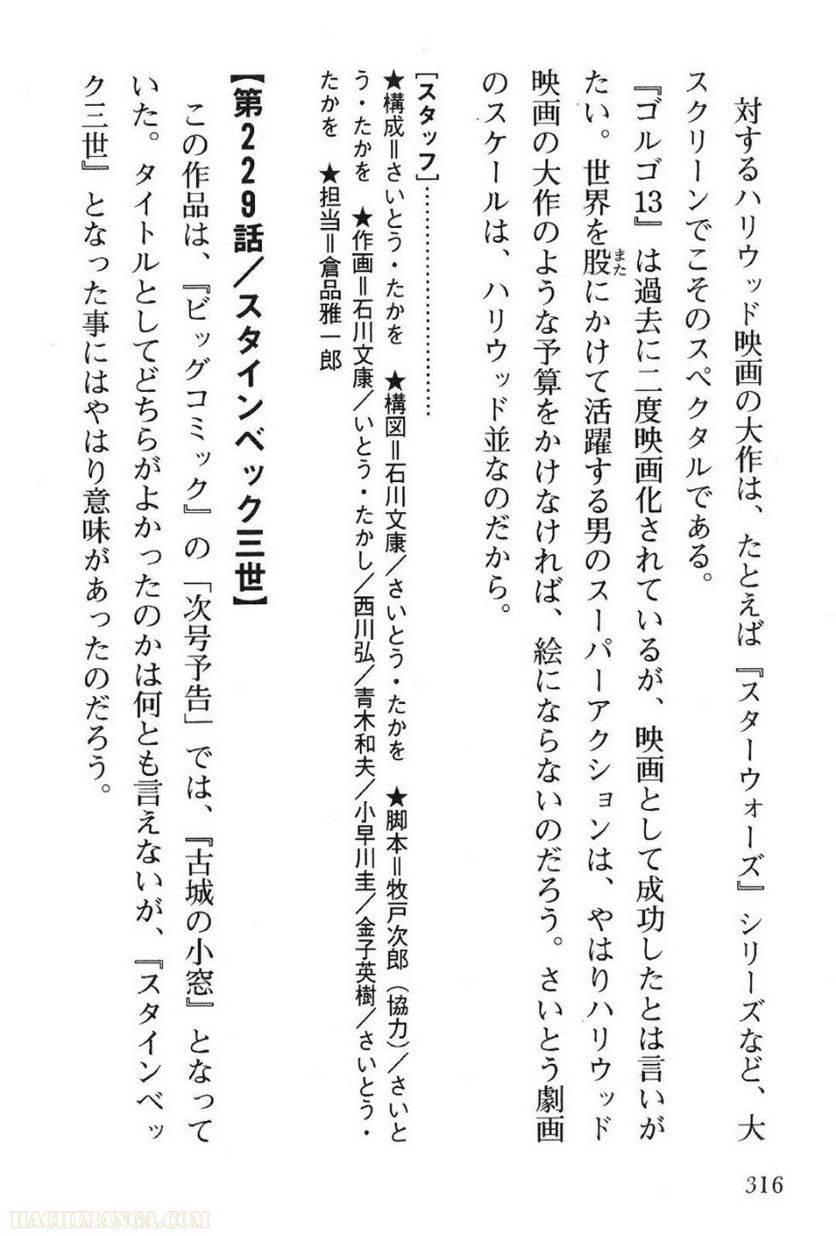 対するハリウッド映画の大作は、たとえば『スターウォーズ』シリーズなど、大
スクリーンでこそのスペクタルである。
『ゴルゴ13』は過去に二度映画化されているが、映画として成功したとは言いが
たい。世界を股にかけて活躍する男のスーパーアクションは、やはりハリウッド
また
映画の大作のような予算をかけなければ、絵にならないのだろう。さいとう劇画
のスケールは、ハリウッド並なのだから。
[スタッフ]………………………
★構成＝さいとう・たかを ★構図＝石川文康／さいとう・たかを ★脚本＝牧戸次郎（協力）／さいと
う・たかを ★作画＝石川文康／いとう・たかし／西川弘／青木和夫／小早川圭／金子英樹／さいとう・
たかを ★担当＝倉品雅一郎
【第229話／スタインベック三世】
この作品は、『ビッグコミック』の「次号予告」では、『古城の小窓』となって
いた。タイトルとしてどちらがよかったのかは何とも言えないが、『スタインベッ
ク三世』となった事にはやはり意味があったのだろう。
316
HACHIMANGA.COM